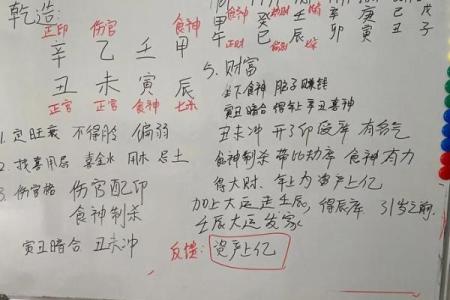 乾造:
正印 伤官 食神
辛 乙 壬 甲
丑 未 寅 辰
正官 正官 食神 七杀
食神
甲 癸 壬 辛 庚 己 戊
午 巳 辰 卯 寅 丑 子
正财 七杀
1. 定旺衰 不得令 偏弱
2. 找喜用忌 喜金水 用木 忌土
3. 伤官格 伤官配印
食神制杀
寅丑暗合 丑未冲
5. 财富
坐下食神 脑子赚钱
寅丑暗合 得年上辛丑喜神
丑未冲 开了印
食神制杀 带比劫库 食神有力
得大财、年上为资产上亿
加上大运走壬辰, 得辰库 31岁之前
壬辰大运发家
反馈: 资产上亿